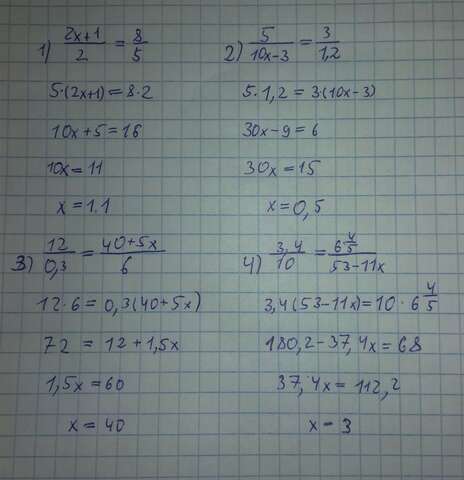 1) (2x+1)/2 = 8/5
5·(2x+1)=8·2
10x+5=16
10x=11
x=1.1
2) 5/(10x-3) = 3/(1,2)
5·1,2=3·(10x-3)
30x-9=6
30x=15
x=0,5
3) 12/(0,3) = (40+5x)/6
12·6=0,3(40+5x)
72=12+1,5x
1,5x=60
x=40
4) (3,4)/10 = (6 4/5)/(53-11x)
3,4(53-11x)=10·6 4/5
180,2-37,4x=68
37,4x=112,2
x-3